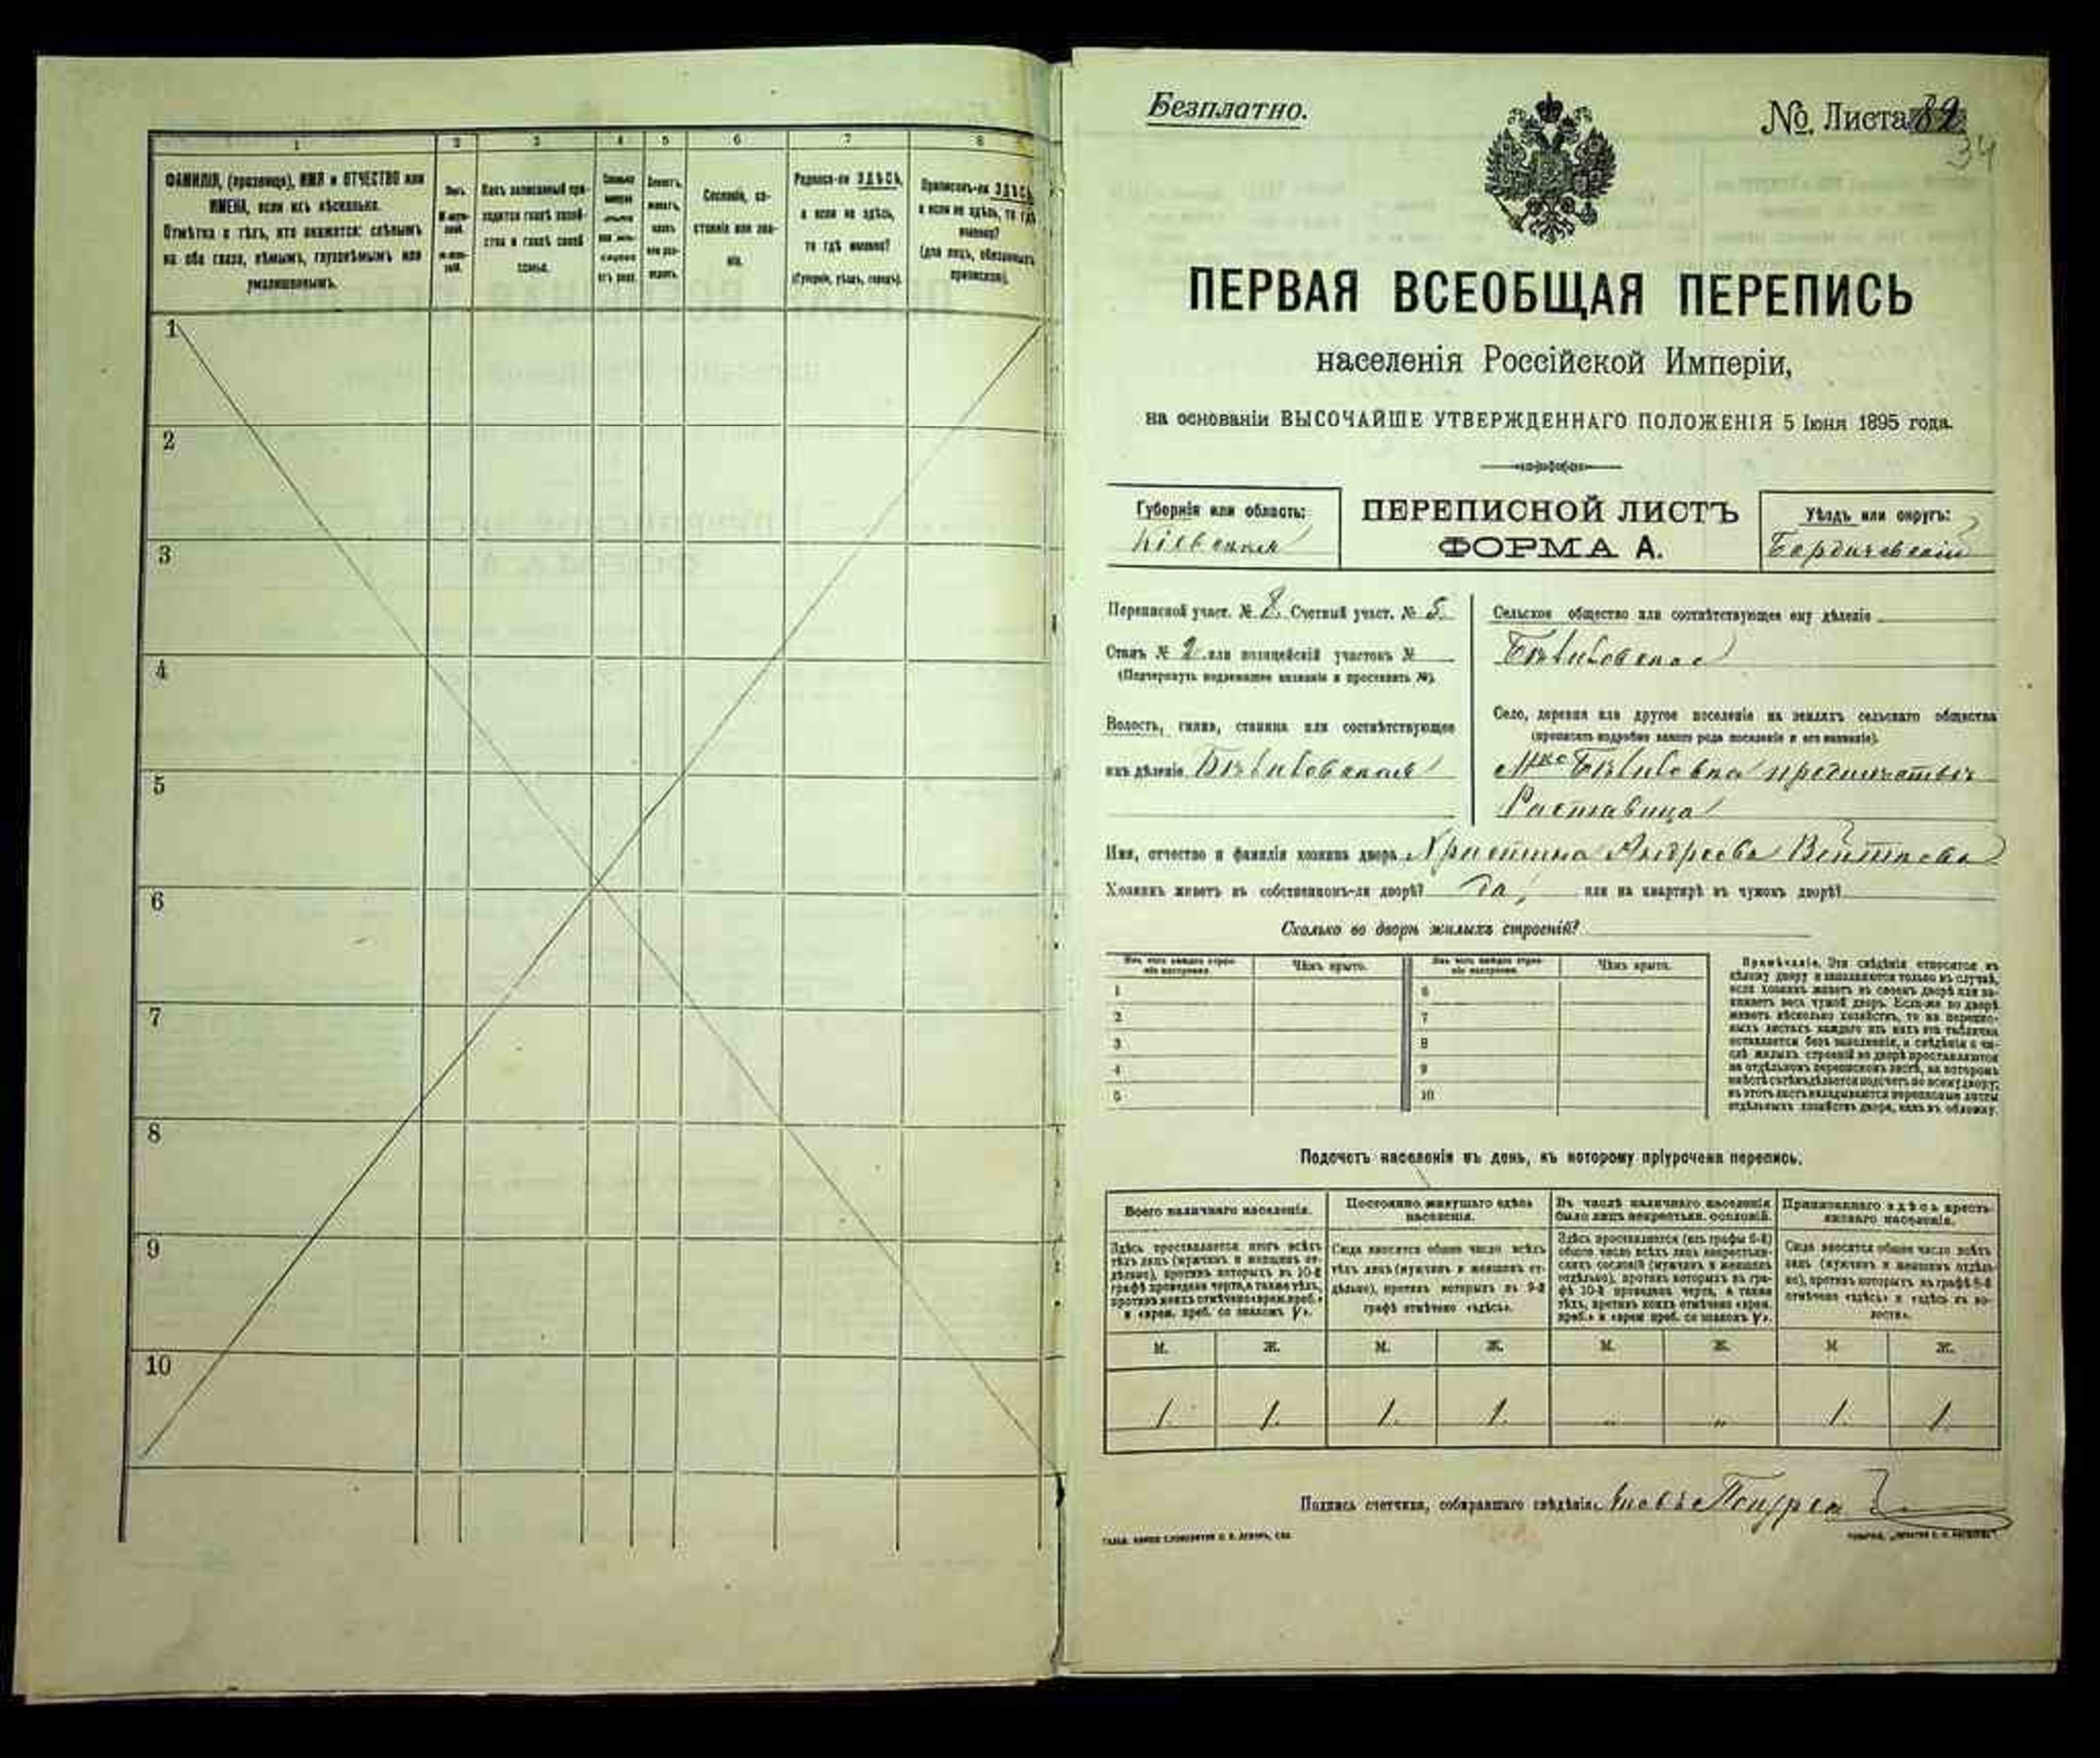 1 2 3 4 5 6 7 8
ФАМИЛІЯ, (прозвище), ИМЯ и ОТЧЕСТВО или
ИМЕНА, если ихъ нѣсколько.
Отмѣтка о тѣхъ, кто окажется: слѣпымъ
на оба глаза, нѣмымъ, глухонѣмымъ или
умалишеннымъ.
Полъ.
Какъ записанный при-
ходится главѣ хозяй-
ства и главѣ своей
семьи.
Сословіе, со-
стояніе или зва-
ніе.
Родился-ли ЗДѢСЬ,
а если не здѣсь,
то гдѣ именно?
(Губернія, уѣздъ, городъ).
Приписанъ-ли ЗДѢСЬ,
а если не здѣсь, то гдѣ
именно?
(для лицъ, обязанныхъ
припиской).
1
2
3
4
5
6
7
8
9
10
Безплатно.
№. Листа 82
34
ПЕРВАЯ ВСЕОБЩАЯ ПЕРЕПИСЬ
населенія Россійской Имперіи,
на основаніи ВЫСОЧАЙШЕ УТВЕРЖДЕННАГО ПОЛОЖЕНІЯ 5 Іюня 1895 года.
Губернія или область:
Кіевская
ПЕРЕПИСНОЙ ЛИСТЪ
ФОРМА А.
Уѣздъ или округъ:
Бердичевскій
Переписной участ. № 8. Счетный участ. № 5.
Станъ № 2 или полицейскій участокъ №
(Подчеркнуть подлежащее названіе и проставить №).
Волость, гмина, станица или соотвѣтствующее
имъ дѣленіе Бѣлиловская
Сельское общество или соотвѣтствующее ему дѣленіе
Бѣлиловское
Село, деревня или другое поселеніе на земляхъ сельскаго общества
(прописать подробно какого рода поселеніе и его названіе).
Мко Бѣлиловка предмѣстье
Раставица
Имя, отчество и фамилія хозяина двора Христина Андреева
Хозяинъ живетъ въ собственномъ-ли дворѣ? да, или на квартирѣ въ чужомъ дворѣ?
Сколько во дворѣ жилыхъ строеній?
Изъ чего каждое строе-
ніе построено.
Чѣмъ крыто.
Изъ чего каждое строе-
ніе построено.
Чѣмъ крыто.
1 6
2 7
3 8
4 9
5 10
Примѣчаніе. Эти свѣдѣнія относятся къ
цѣлому двору и заполняются только въ случаѣ,
если хозяинъ живетъ въ своемъ дворѣ или за-
нимаетъ весь чужой дворъ. Если-же во дворѣ
живетъ нѣсколько хозяйствъ, то на перепис-
ныхъ листахъ каждаго изъ нихъ эта табличка
оставляется безъ заполненія, а свѣдѣнія о чи-
слѣ жилыхъ строеній во дворѣ проставляются
на отдѣльномъ переписномъ листѣ, на которомъ
вмѣстѣ съ тѣмъ дѣлается подсчетъ по всему двору;
въ этотъ листъ вкладываются переписные листы
отдѣльныхъ хозяйствъ двора, какъ въ обложку.
Подсчетъ населенія въ день, къ которому пріурочена перепись.
Всего наличнаго населенія.
Здѣсь проставляется итогъ всѣхъ
тѣхъ лицъ (мужчинъ и женщинъ от-
дѣльно), противъ которыхъ въ 10-й
графѣ проведена черта, а также тѣхъ,
противъ коихъ отмѣчено «врем. преб.»
и «врем. преб. со знакомъ V».
Постоянно живущаго здѣсь
населенія.
Сюда вносится общее число всѣхъ
тѣхъ лицъ (мужчинъ и женщинъ от-
дѣльно), противъ которыхъ въ 9-й
графѣ отмѣчено «здѣсь».
Въ числѣ наличнаго населенія
было лицъ некрестьян. сословій.
Здѣсь проставляется (изъ графы 6-й)
общее число всѣхъ лицъ некрестьян-
скихъ сословій (мужчинъ и женщинъ
отдѣльно), противъ которыхъ въ гра-
фѣ 10-й проведена черта, а также
тѣхъ, противъ коихъ отмѣчено «врем.
преб.» и «врем преб. со знакомъ V».
Приписаннаго здѣсь кресть-
янскаго населенія.
Сюда вносится общее число всѣхъ
лицъ (мужчинъ и женщинъ отдѣль-
но), противъ которыхъ въ графѣ 8-й
отмѣчено «здѣсь» и «здѣсь въ во-
лости».
М. Ж. М. Ж. М. Ж. М Ж.
1. 1. 1. 1. „ „ 1. 1.
Подпись счетчика, собиравшаго свѣдѣнія